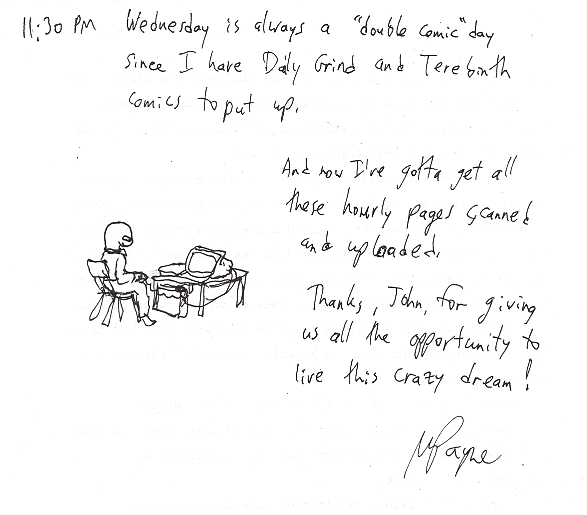 11:30 PM Wednesday is always a "double comic" day
since I have Daily Grind and Terebinth
comics to put up.
And now I've gotta get all
these hourly pages scanned
and uploaded.
Thanks, John, for giving
us all the opportunity to
live this crazy dream!
MPayne